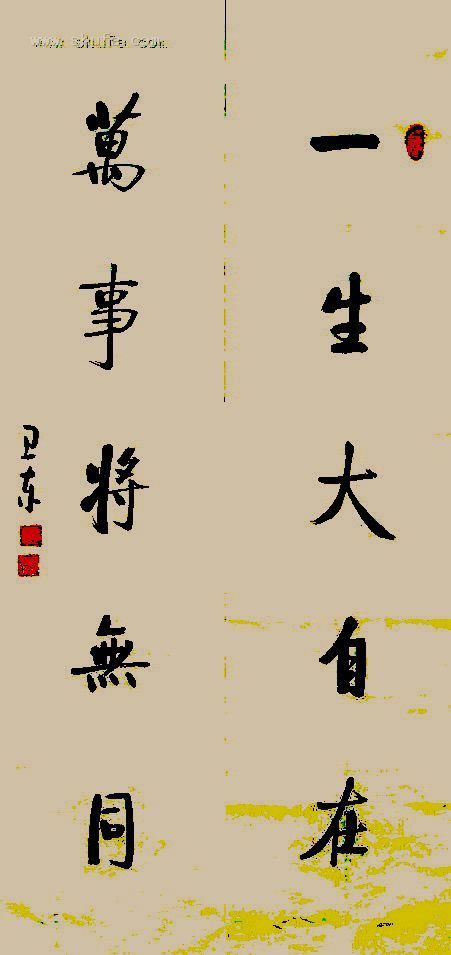 一生大自在
萬事將無同
卫东